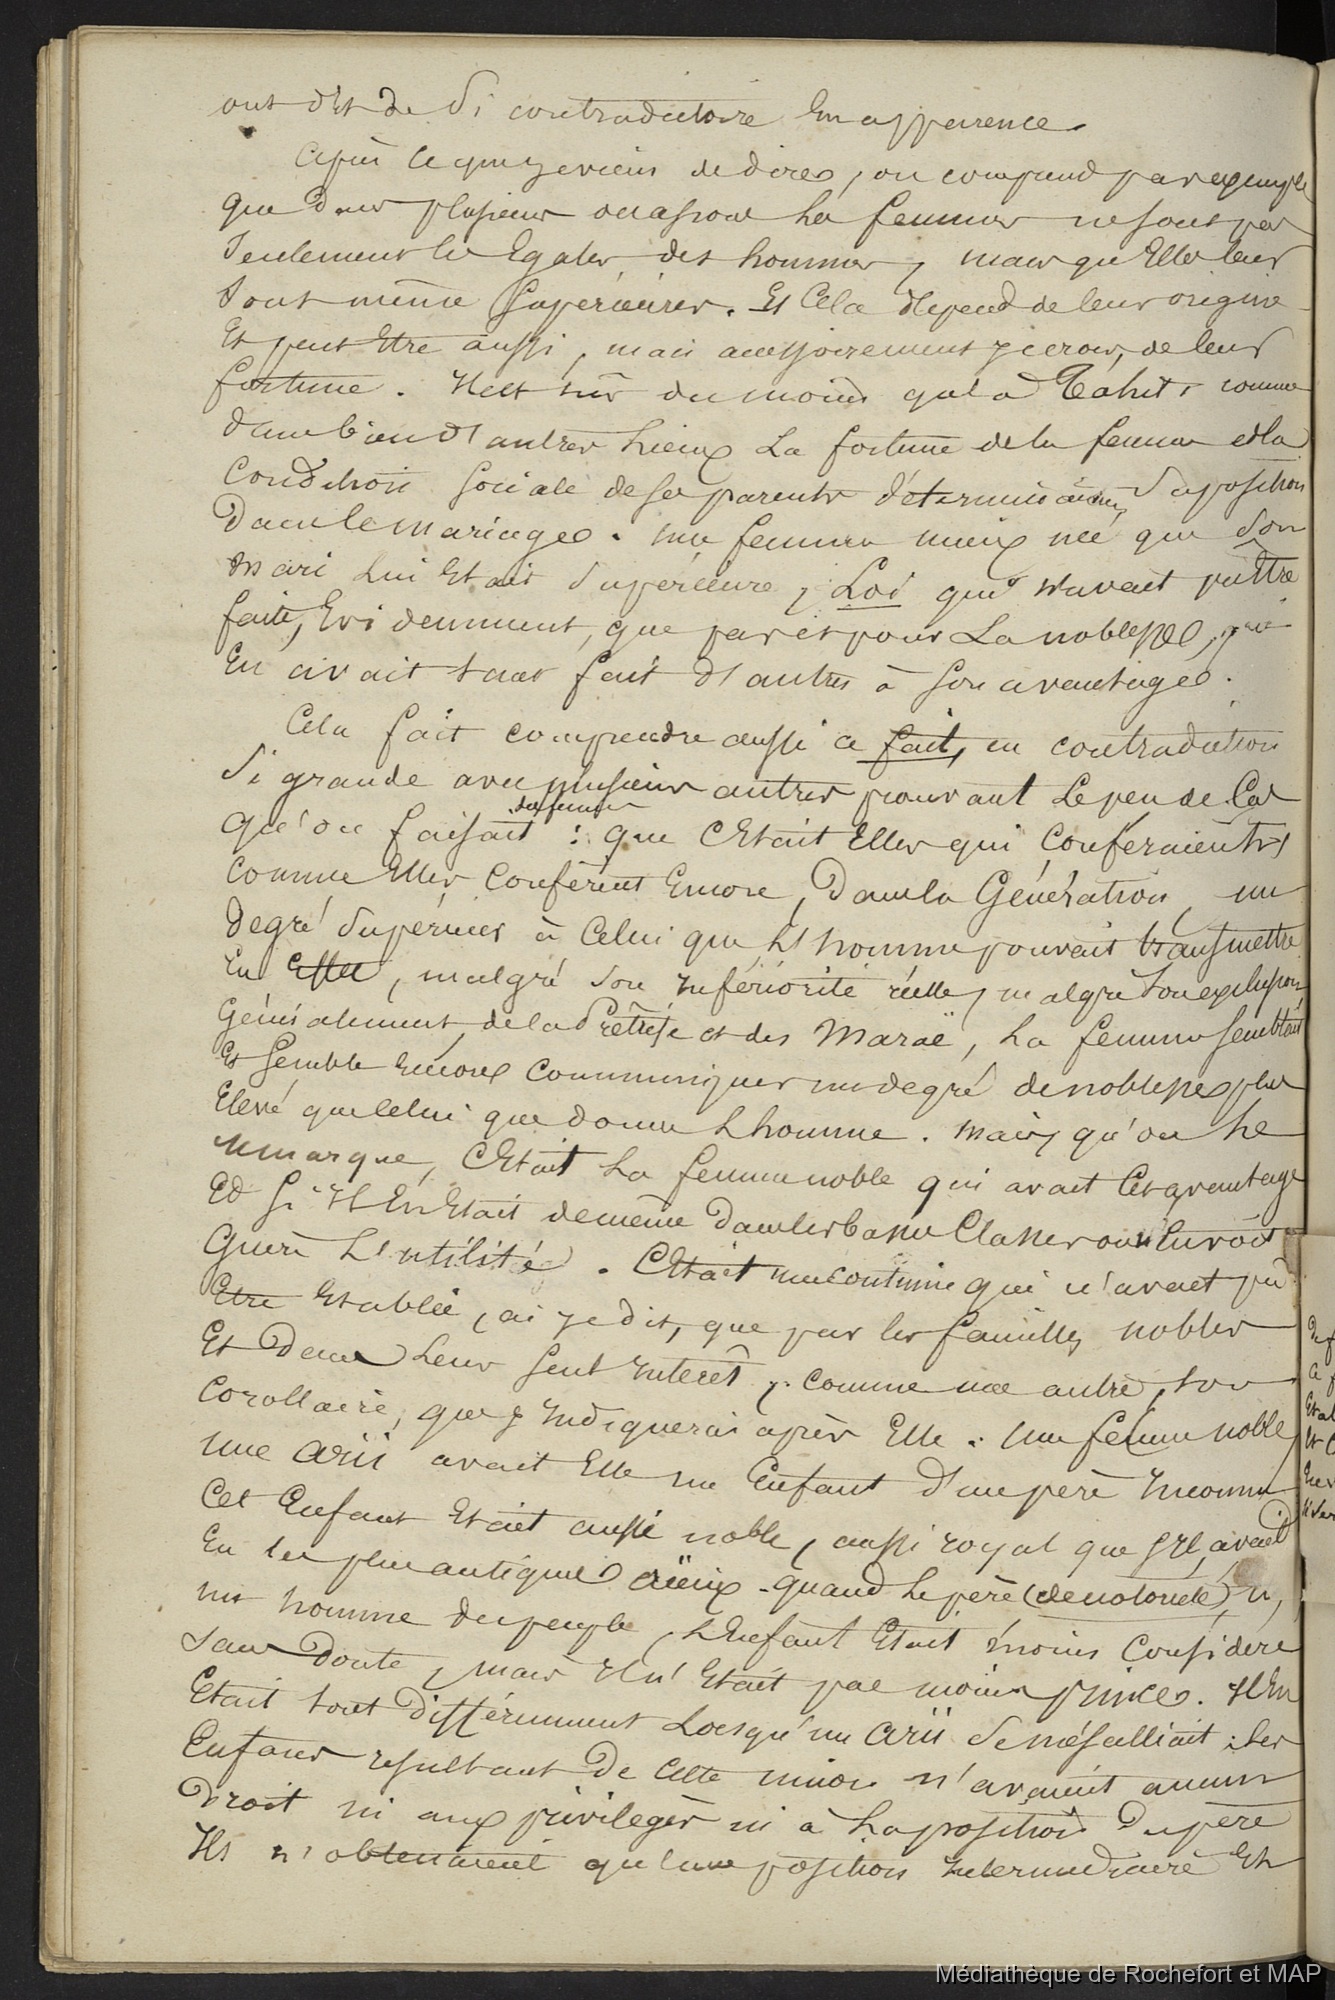 ont dit de si contradictoire en apparence.
Après ce que je viens de dire, on comprend par exemple
que dans plusieurs occasions les femmes ne sont pas
seulement les Egales des hommes, mais qu'Elles leur
sont même supérieures. Et Cela dépend de leur origine
Et peut Etre aussi, mais accessoirement je crois, de leur
fortune. Il est sûr du moins qu'à Tahiti comme
dans bien d'autres lieux La fortune de la femme et la
Condition sociale de ses parents déterminaient sa position
Dans le mariage. une femme mieux née que son
Mari Lui Etait supérieure, Loi qui n'avait pu Etre
faite, Evidemment, que par et pour La noblesse, qui
En avait tant fait d'autres à son avantage.
Cela fait comprendre aussi ce fait, en contradiction
si grande avec plusieurs autres prouvant Le peu de Cas
qu'on faisait des femmes : que C'Etait Elles qui Conféraient,
comme Elles Confèrent Encore, Dans la Génération, un
Degré supérieur à Celui que L'homme pouvait transmettre
En Effet, malgré son Infériorité réelle, malgré son exclusion
Généralement, de la Prêtrise et des Maraë, La femme semblait
Et semble Encore communiquer un degré de noblesse plus
Elevé que Celui que donne L'homme. Mais, qu'on le
remarque, C'Etait La femme noble qui avait Cet avantage
Et si Il En Etait de même Dans les basses Classes on n'En voit
Guère L'utilité. C'Etait une coutume qui n'avait pu
Etre Etablie, ai-je dit, que par les familles nobles
Et Dans Leur seul Intérêt, comme une autre, son
Corollaire, que j'Indiquerai après Elle : une femme noble
une arii avait Elle un Enfant d'un père Inconnu
Cet Enfant Etait aussi noble, aussi royal que s'Il avait
Eu les plus antiques aïeux - quand Le père (de notoriété)
un homme du peuple, L'Enfant Etait moins Considéré
sans Doute, mais Il n'Etait pas moins prince. Il En
Etait tout Différemment Lorsqu'un Arii se mésalliait ; Les
Enfans résultant De Cette union n'avaient aucun
Droit ni aux privilèges ni à La position Du père
Ils n'obtenaient qu'une position Intermédiaire Et
Médiathèque de Rochefort et MAP